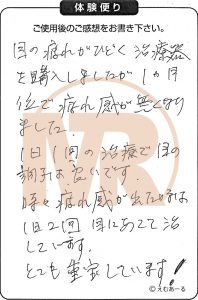 体験便り
ご使用後のご感想をお書き下さい。
目の疲れがひどく治療器
を購入しましたが1カ月
位で疲れ感が無くなり
ました。
1日1回の治療で目の
調子は良いです。
時々疲れ感が出た時は
1日2回目にあてて治
しています。
とても重宝しています!
MR
©えむあーる